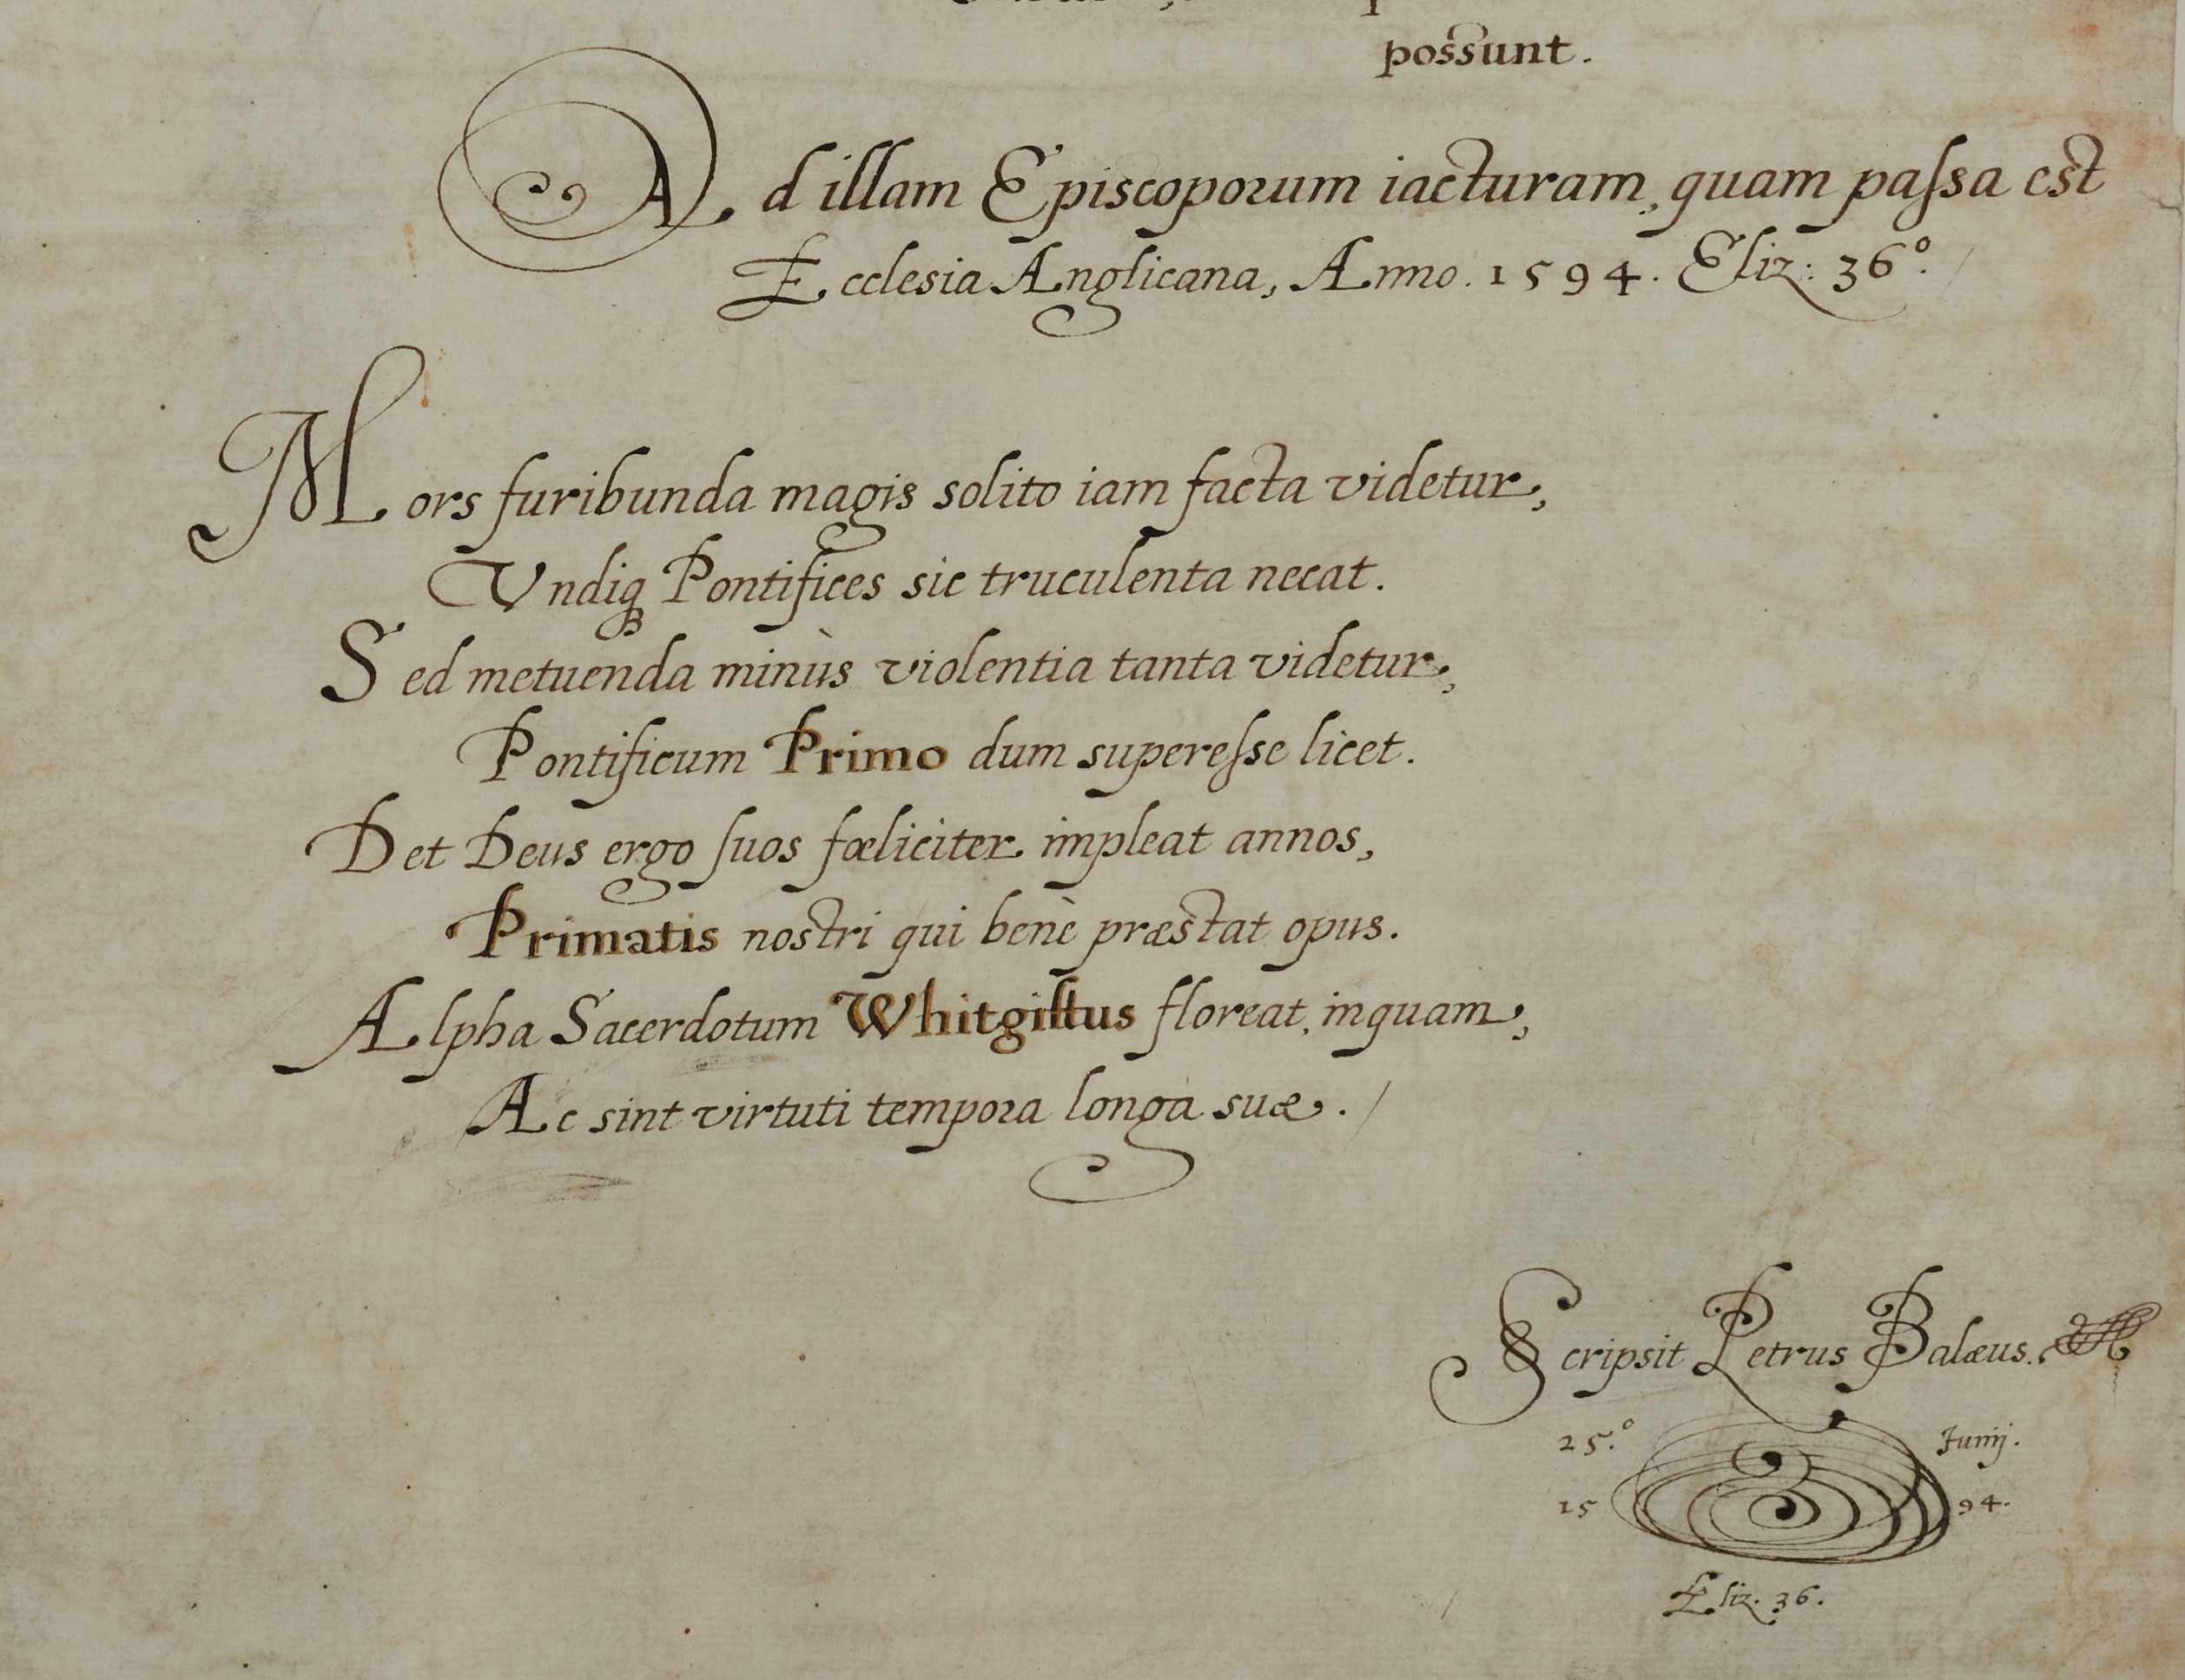 possunt.
Ad illam Episcoporum iacturam, quam paſsa est
Ecclesia Anglicana, Anno. 1594. Eliz: 36º.
Mors furibunda magis solito iam facta videtur,
Vndiqꝫ Pontifices sic truculenta necat.
Sed metuenda minùs violentia tanta videtur,
Pontificum Primo dum supereſse licet.
Det Deus ergo ſuos fœliciter impleat annos,
Primatis nostri qui benè præstat opus.
Alpha Sacerdotum Whitgiftus floreat, inquam,
Ac sint virtuti tempora longa suæ.
Scripsit Petrus Balæus.
25.º Junij.
15 94.
Eliz. 36.